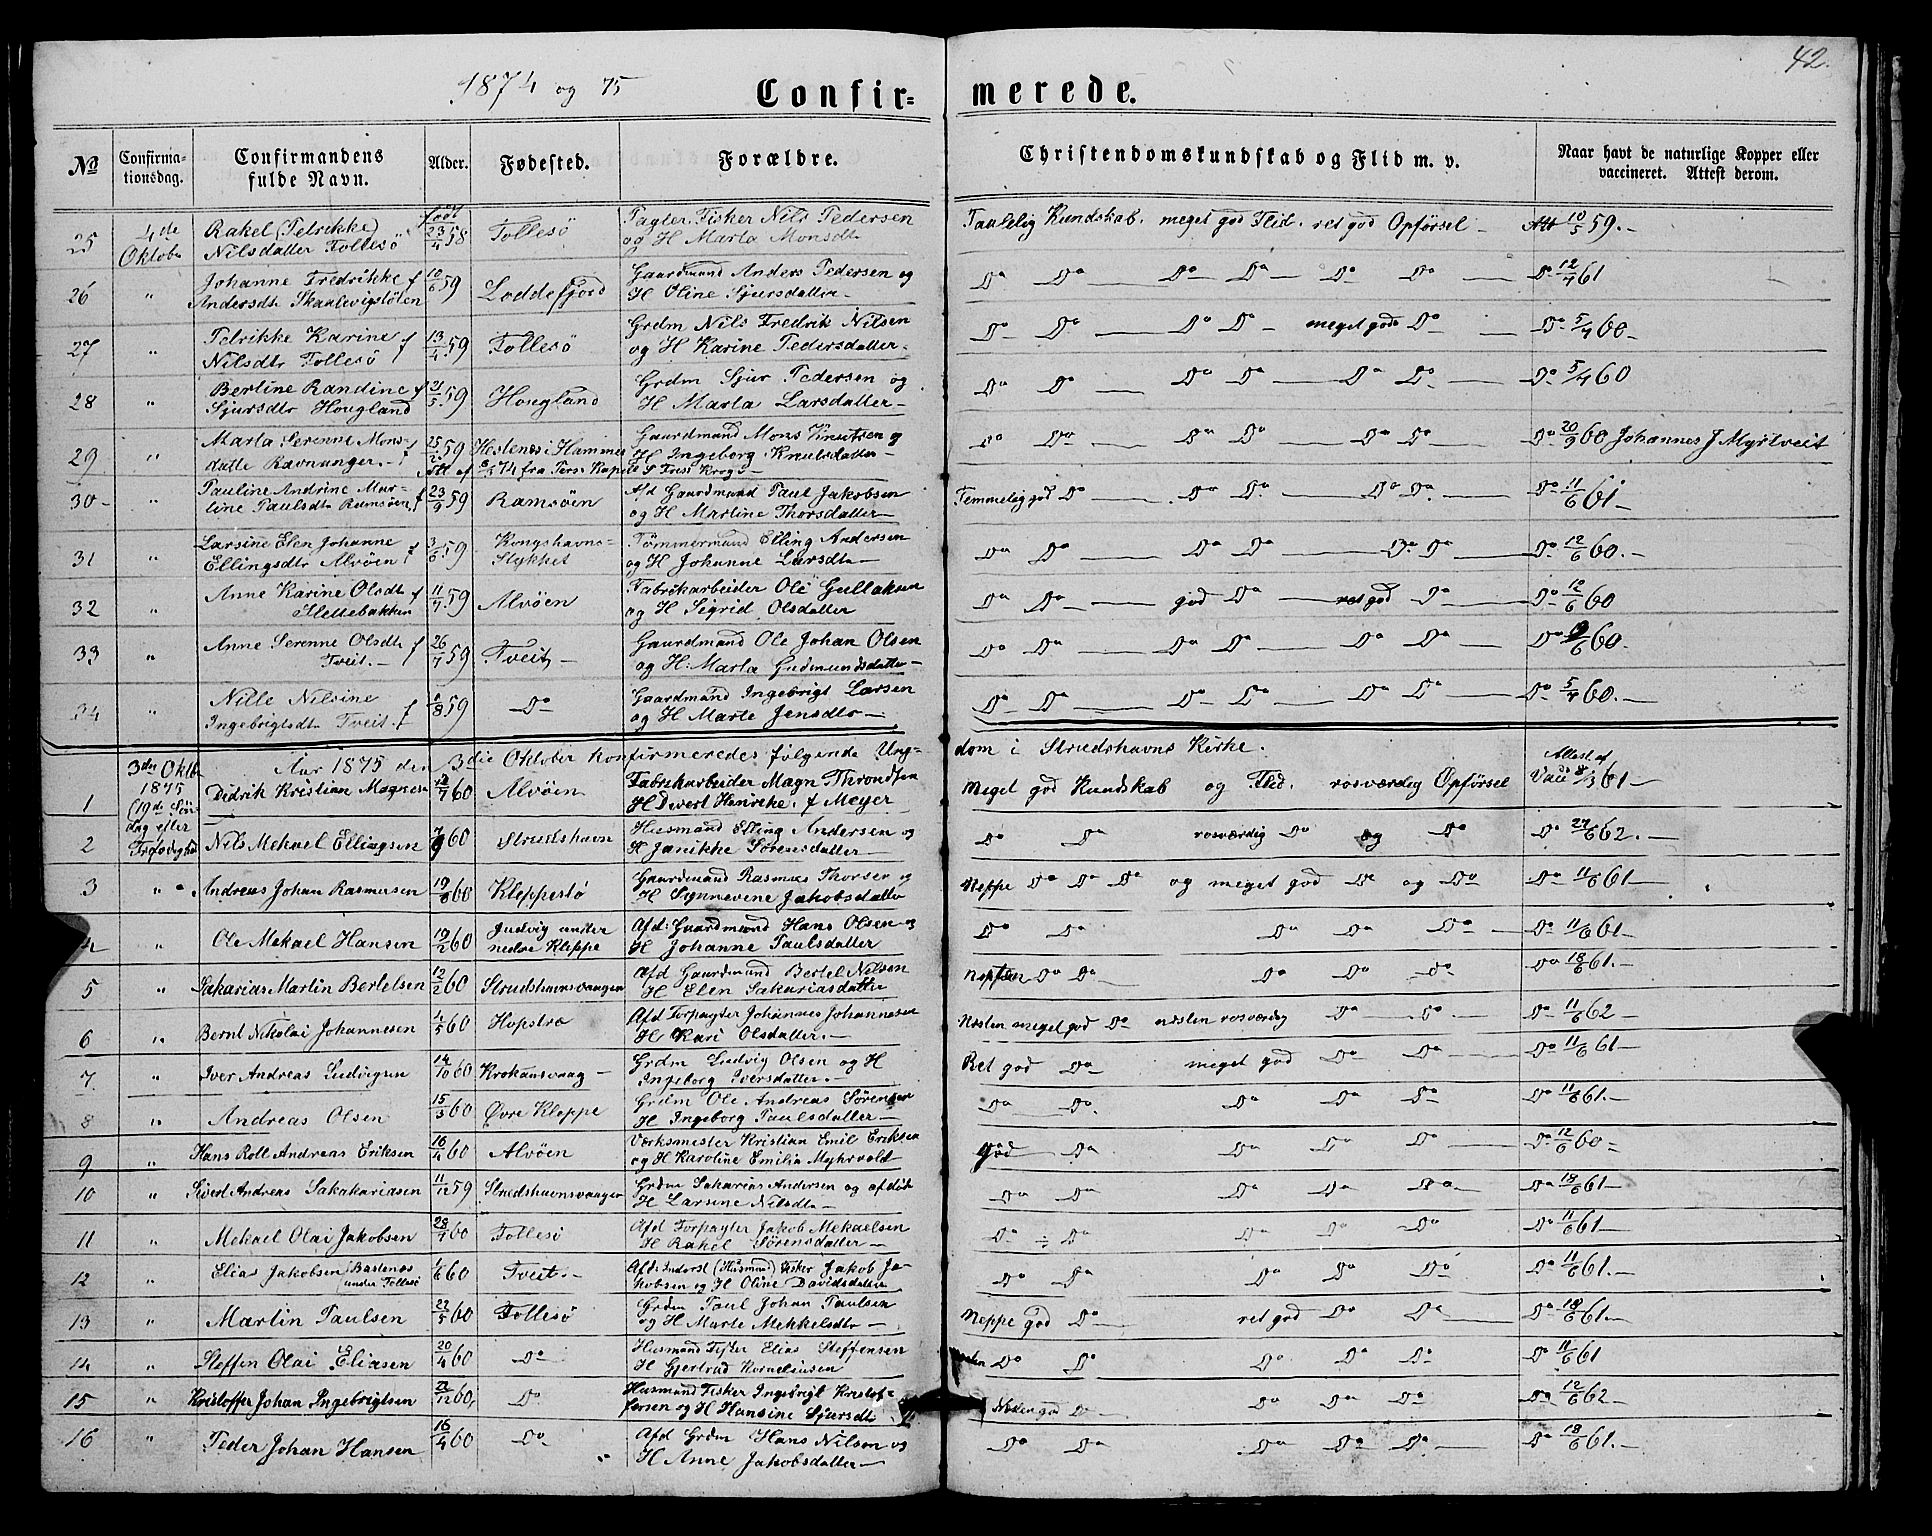 1874 og 75
Confir=
merede.
42.
No
Confirma-
tionsdag.
Confirmandens
fulde Navn.
Alder.
Fødested.
Forældre.
Christendomskundskab og Flid m. v.
Naar havt de naturlige Kopper eller
vaccineret. Attest derom.
25 4de Oktober Rakel (Petrikke) født 23/4 58 Follesø Pagter. Fisker Nils Pedersen Taalelig Kundskab. meget god Flid. ret god Opførsel Att 10/5 59.-
Nilsdatter Follesø og H Marta Monsdtr
26 " Johanne Fredrikke f 10/6 59 Loddefjord Gaardmand Anders Pedersen og Do Do Do Do Do Do Do 12/4 61
Andersdtr Skaalevigsløten H Oline Sjursdatter-
27 " Petrikke Karine f 13/4 59 Follesø Grdm Nils Fredrik Nilsen Do Do Do Do meget god Do Do 5/4 60-
Nilsdtr Follesø og H Karine Pedersdatter-
28 " Bertine Randine f 21/5 59 Hougland Grdm Sjur Pedersen og Do Do Do Do Do Do Do 5/4 60
Sjursdtr Hougland H Marta Larsdatter-
29 " Marta Serenne Mons- f 25/2 59 Hestenes i Hammer Gaardmand Mons Knutsen og Do Do Do Do Do Do Do 20/9 60 Johannes J Myrtveit
datte Ravnanger.- H Ingeborg Knutsdatter-
Att af 8/5 74 fra Pers. Kapel
30- " Pauline Andrine Mar- f 23/9 59 Ramsøen Afd Gaardmand Paul Jakobsen Temmelig god Do Do Do Do Do Do 11/6 61-
tine Paulsdtr Ramsøen og H Martine Thorsdatter-
31 " Larsine Elen Johanne f 3/6 59 Kongshavns= Tømmermand Elling Andersen Do Do Do Do Do Do Do 12/6 60.-
Ellingsdtr Alvøen stykket og H Johanne Larsdtr
32 " Anne Karine Olsdtr f 11/7 59 Alvøen Fabrikarbeider Ole Gullaksen Do Do god Do ret god Do Do 12/6 60
Slettebakken og H Sigrid Olsdatter
33 " Anne Serenne Olsdtr f 26/7 59 Tveit- Gaardmand Ole Johan Olsen Do Do Do Do Do Do Do /6 60.
Tveit.- og H. Marta Gudmundsdatter-
34 " Nille Nilsine f /8 59 Do Gaardmand Ingebrigt Larsen Do Do Do Do Do Do Do 5/4 60.-
Ingebrigtsdtr Tveit. og H Marte Jensdtr-
Aar 1875 den 3die Oktober konfirmeredes følgende Ung=
dom i Strudshavns Kirke.
1 3die Oktbr 1875 Didrik Kristian Magnesen /7 60 Alvøen Fabrikarbeider Magn Throndsen Meget god Kundskab og Flid. rosværdig Opførsel Attest af Vacc /3 61-
(19de Søn- H Divert Henrikke. f Meyer
dag efter
Trefoldighed
2 Nils Mekael Ellingsen 7/9 60 Strudshavn Husmand Elling Andersen og Do Do rosværdig Do og Do Do 27/6 62.-
H Janikke Sørensdatter-
3 " Andreas Johan Rasmusen 19/6 60 Kleppestø Gaardmand Rasmus Thorsen og Neppe Do Do Do og meget god Do og Do Do 11/6 61-
H Synnevine Jakobsdatter
4 " Ole Mekael Hansen 19/2 60 Judvig under Afd: Gaardmand Hans Olsen og Do Do Do Do Do Do 11/6 61-
nedre Kleppe H Johanne Paulsdatter
5 " Sakarias Martin Bertelsen 12/2 60 Strudshavnsvaagen Afd Gaardmand Bertel Nilsen Do Do Do Do Do Do 18/6 61.-
H Elen Sakariasdatter
6 " Bernt Nikolai Johannesen 4/5 60 Hopstrø Afd Forpagter Johannes Johannesen Næsten meget god Do næsten rosværdig Do Do Do 11/6 62-
H Kari Olsdatter.-
7 " Iver Andreas Ludvigsen 14/10 60 Krokausvaag- Grdm Ludvig Olsen og H Ret god Do meget god Do Do Do 11/6 61-
Ingeborg Iversdatter.-
8 " Andreas Olsen 15/5 60 Øvre Kleppe Grdm Ole Andreas Sørensen Do Do. Do Do Do Do 11/6 61.-
H Ingeborg Paulsdatter-
9 " Hans Roll Andreas Eriksen 16/4 60 Alvøen Værksmester Kristian Emil Eriksen god Do Do Do Do Do 12/6 60-
og H Karoline Emilia Myhrvold-
10 " Sivert Andreas Sakakariasen 11/12 59 Strudshavnsvaagen Grdm Sakarias Andersen og afdøde Do Do Do Do Do Do 18/6 61-
H Larsine Nilsdtr-
11 " Mekael Olai Jakobsen 28/7 60 Follesø Afd Forpagter Jakob Mekaelsen Do Do Do Do Do Do 11/6 61-
H Rakel Sørensdatter-
12 " Elias Jakobsen (Bastenes under Follesø /6 60 Tveit.- Afd: Inderst (Husmand) Fisker Jakob Ja- Do Do Do Do Do Do 11/6 61.-
kobsen og H Oline Davidsdatter
13 " Martin Paulsen 22/5 60 Follesø Grdm Paul Johan Paulsen Neppe god Do ret god Do Do Do 18/6 61.-
og H Marte Mekkelsdtr-
14 " Steffen Olai Eliasen 20/4 60 Do Husmand Fisker Elias Steffensen Næsten Do Do Do Do Do Do 11/6 61
H Gjertrud Korneliusen
15 " Kristoffer Johan Ingebrigtsen 22/12 60, Do Husmand Fisker Ingebrigt Kristof= Næsten god Do Do Do Do Do 12/6 62-
fersen og H Hansine Sjursdtr
16 " Peder Johan Hansen 16/4 60 Do Afd Grdm Hans Nilsen og Do Do Do Do Do Do 18/6 61.-
H Anne Jakobsdatter-